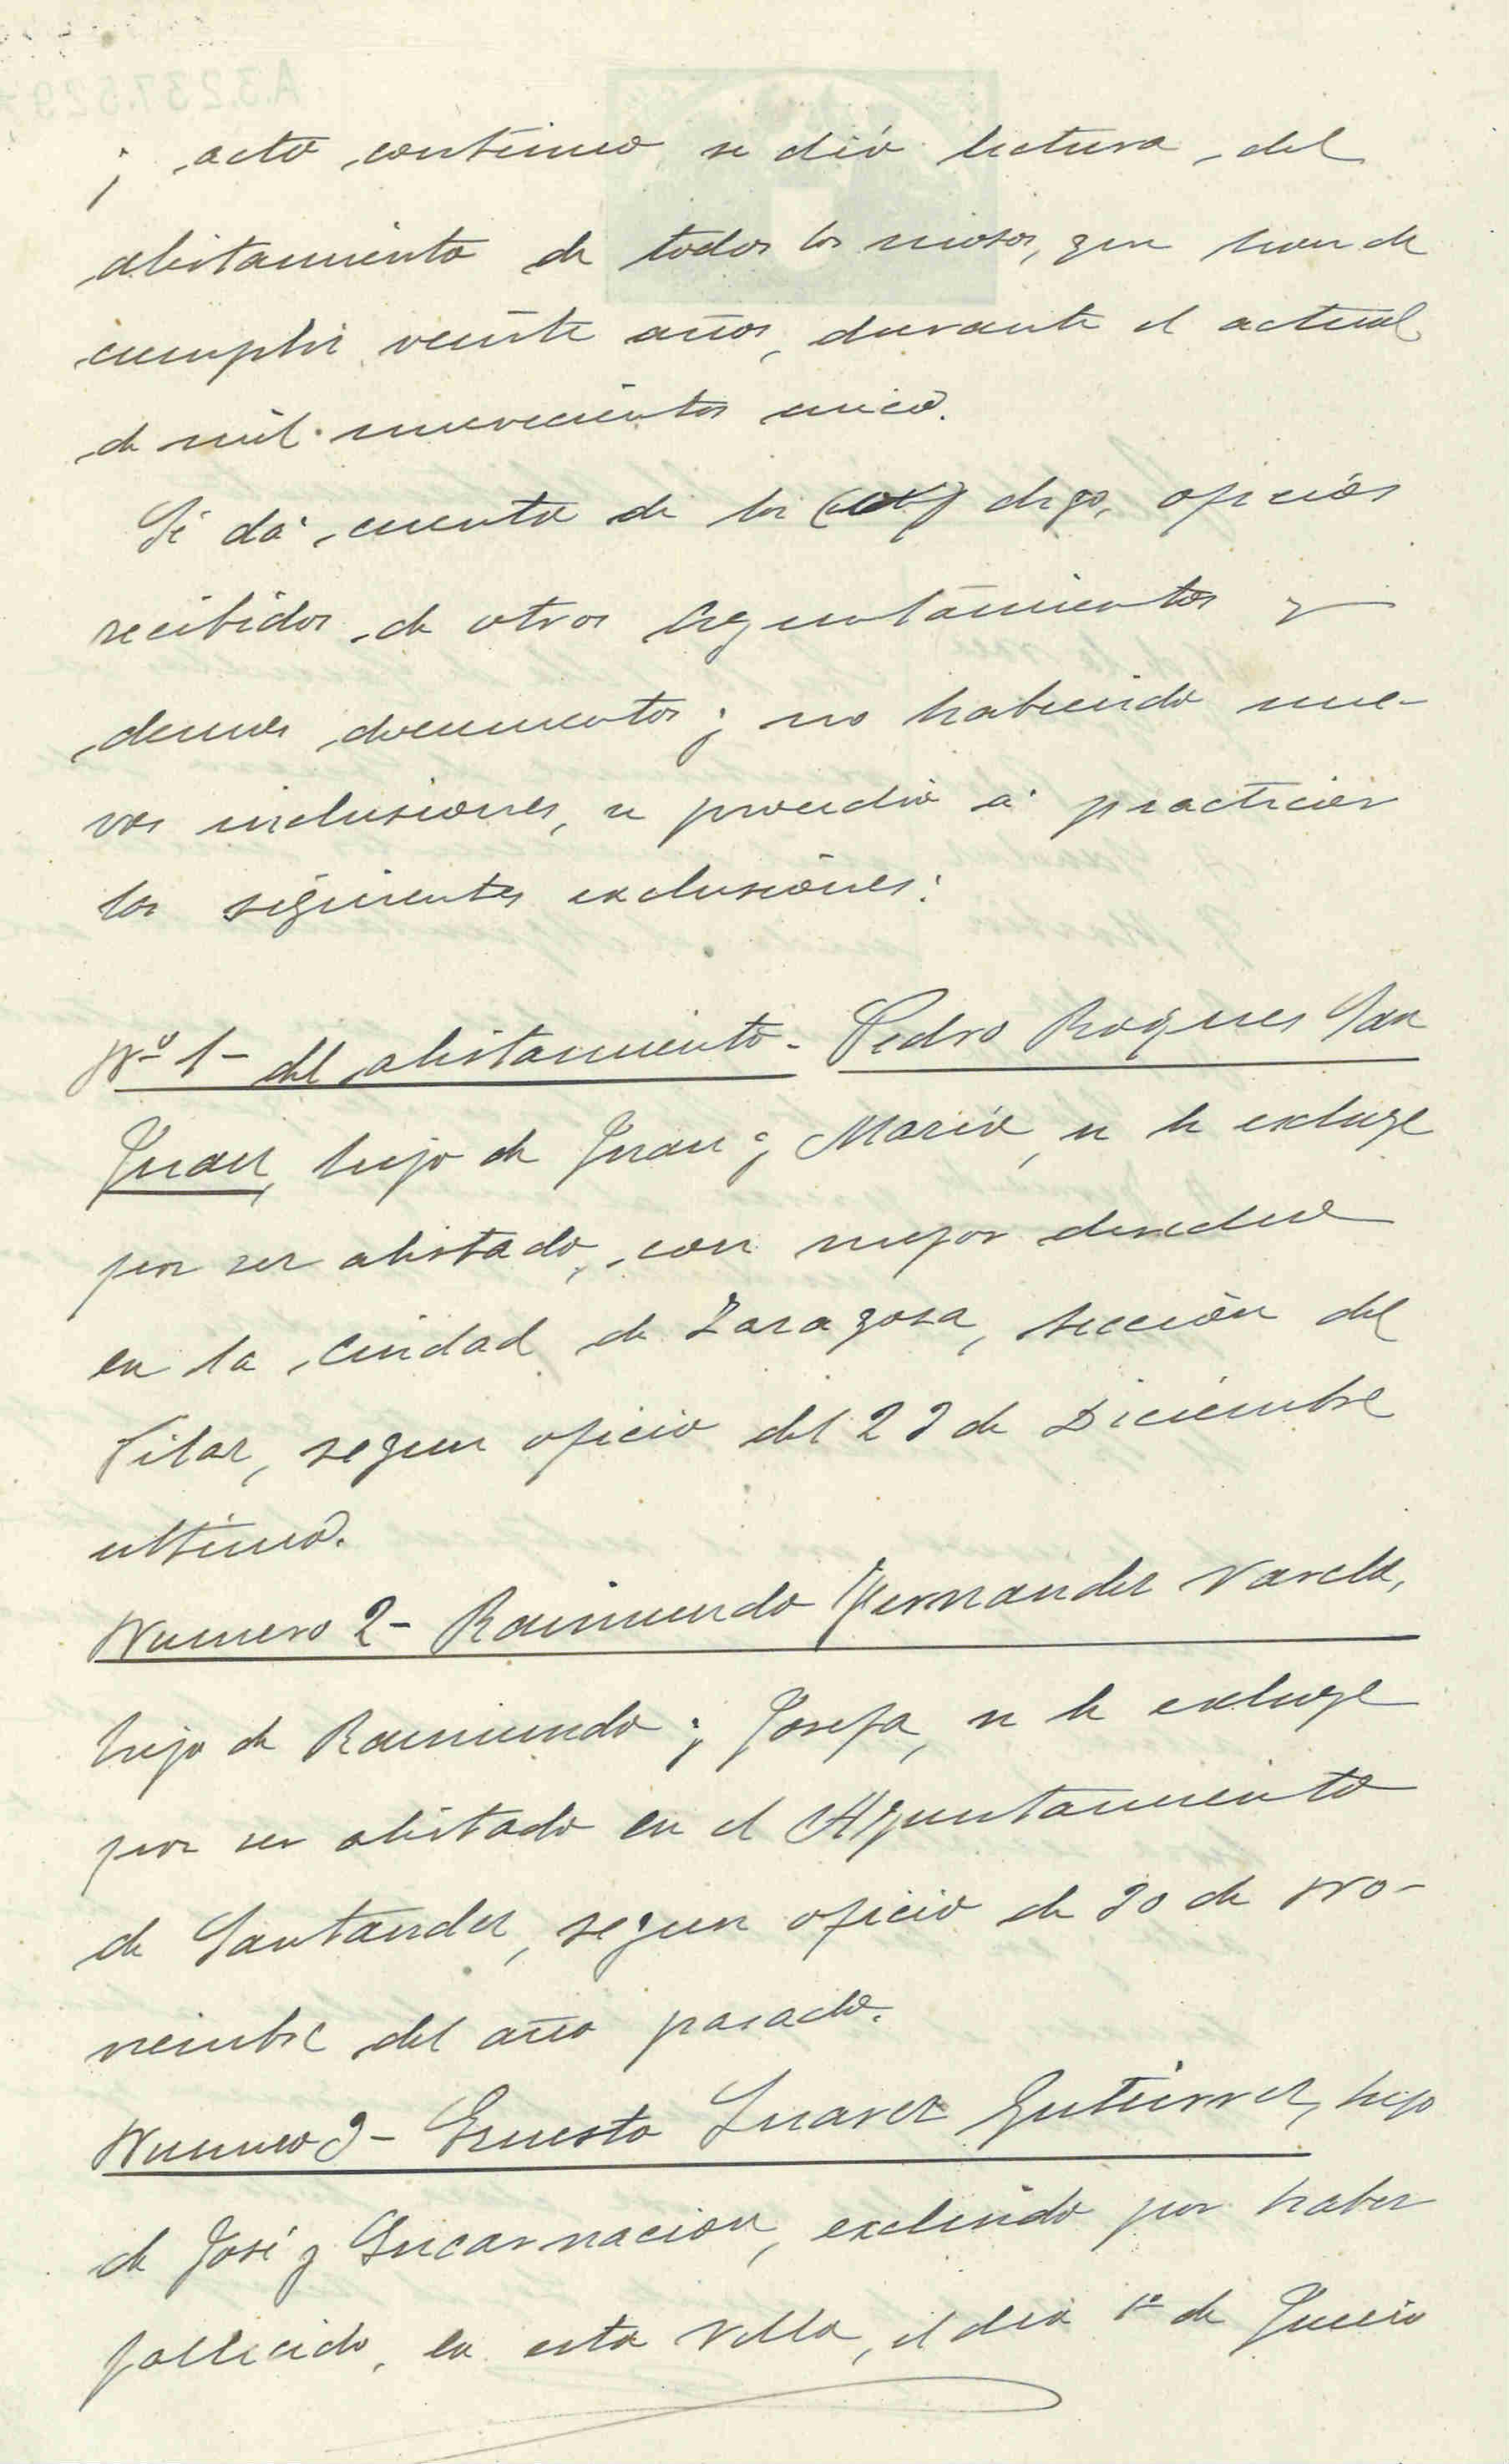 y acto contínuo se dió lectura del
alistamiento de todos los mozos, que han de
cumplir veinte años, durante el actual
de mil novecientos cinco.
Se dá cuenta de los digo, oficios
recibidos de otros Ayuntamientos y
demas documentos; no habiendo nue-
vas inclusiones, se procedió á practicar
las siguientes exclusiones:
Nº 1- del alistamiento- Pedro Roques San
Juan, hijo de Juan y María, se le excluye
por ser alistado, con mejor derecho
en la Ciudad de Zaragoza, sección del
Pilar, segun oficio del 23 de Diciembre
ultimo.
Numero 2- Raimundo Hernandez Varela,
hijo de Raimundo y Josefa, se le excluye
por ser alistado en el Ayuntamiento
de Santander, segun oficio de 30 de No-
viembre del año pasado.
Numero 3- Ernesto Suarez Gutierrez, hijo
de José y Encarnacion, excluido por haber
fallecido, en esta Villa, el dia 1º de Junio